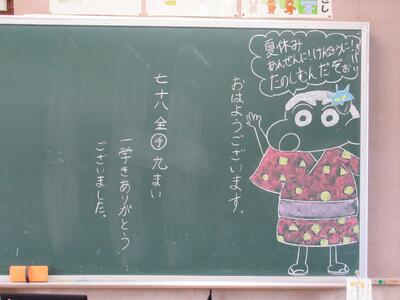 夏休み
あんぜんに!けんこうに!
たのしむんだぞぉ
おはようございます。
七十八 全手 九まい
一学きありがとう
ございました。